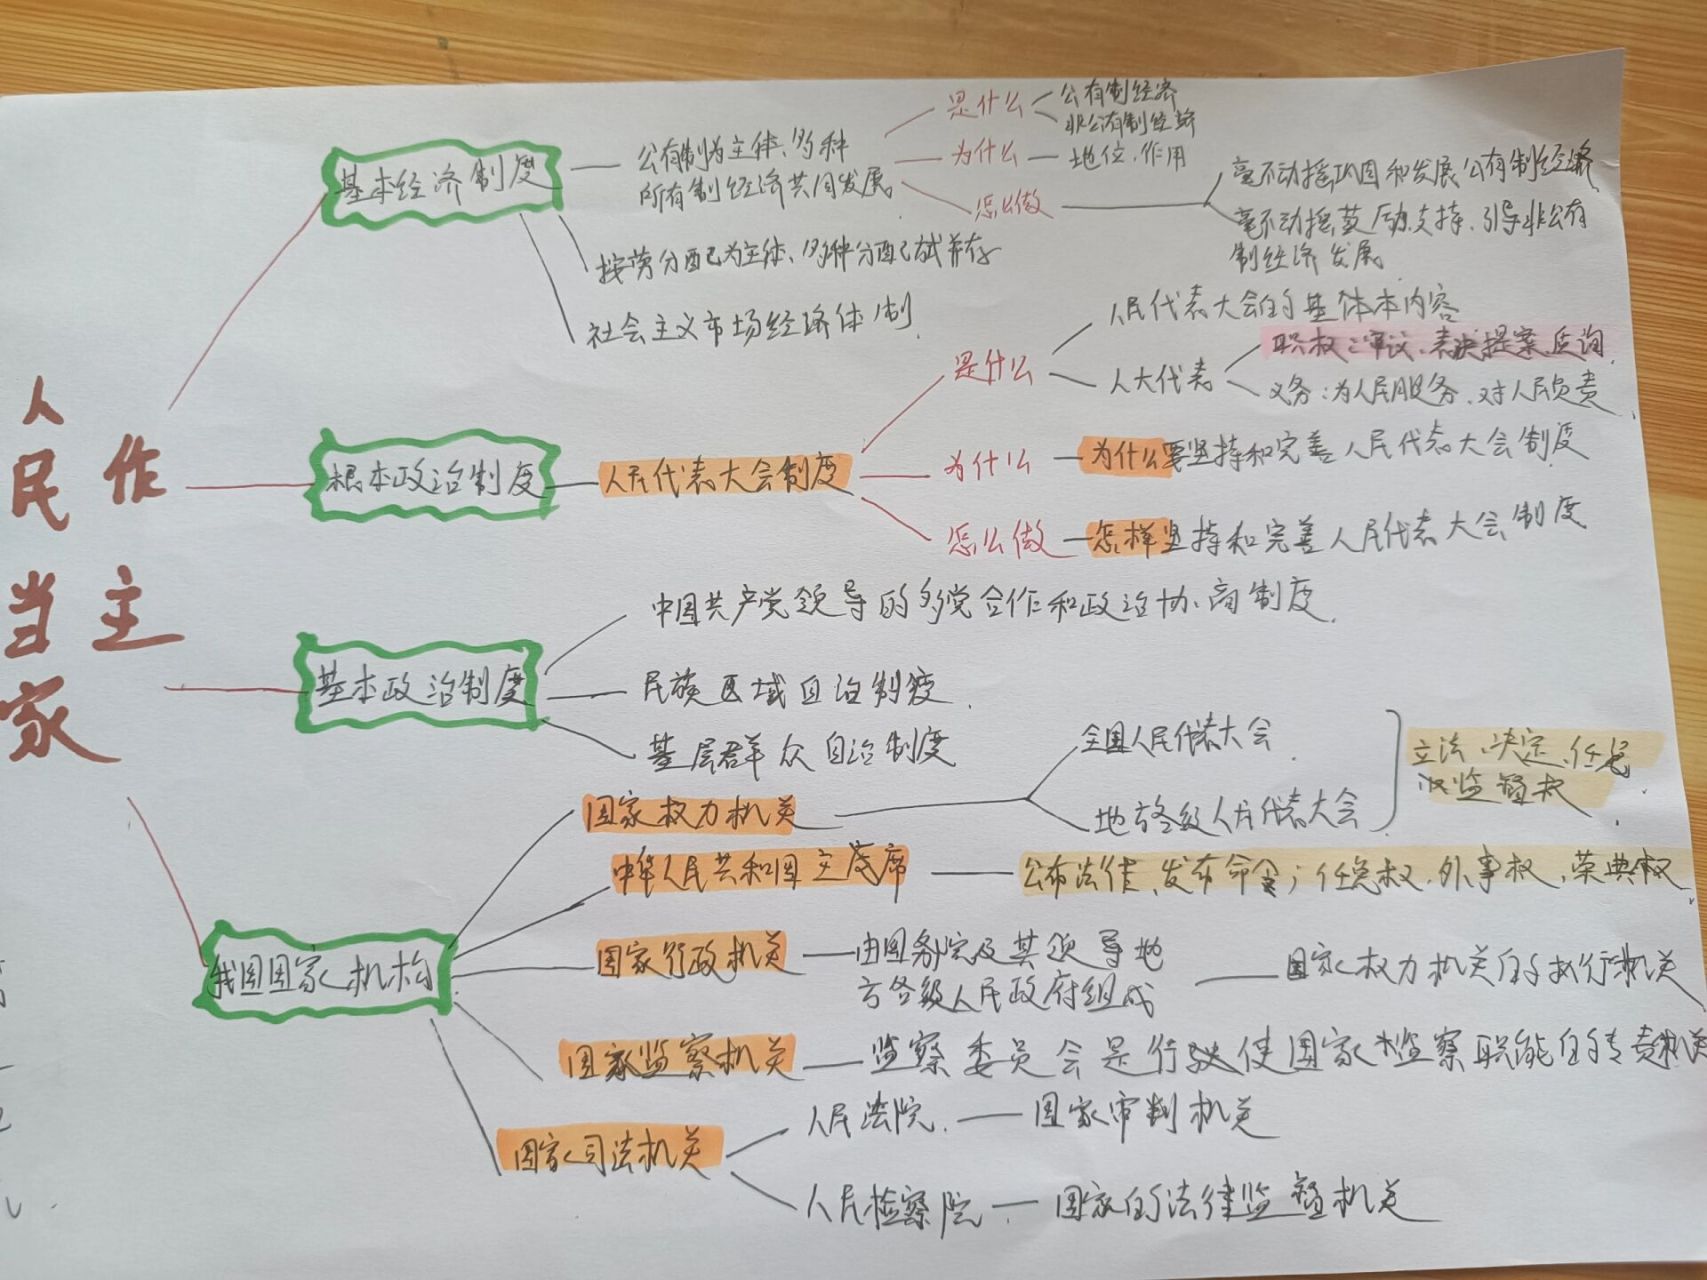 人民
当家
作主
基本经济制度
公有制为主体、多种
所有制经济共同发展
是什么
公有制经济
非公有制经济
为什么
地位、作用
怎么做
毫不动摇巩固和发展公有制经济
毫不动摇鼓励、支持、引导非公有
制经济发展
按劳分配为主体、多种分配方式并存
社会主义市场经济体制
根本政治制度
人民代表大会制度
是什么
人民代表大会的基体本内容
人大代表
职权：审议、表决、提案、质询
义务：为人民服务、对人民负责
为什么
为什么要坚持和完善人民代表大会制度
怎么做
怎样坚持和完善人民代表大会制度
基本政治制度
中国共产党领导的多党合作和政治协商制度
民族区域自治制度
基层群众自治制度
我国国家机构
国家权力机关
全国人民代表大会
地方各级人民代表大会
立法、决定、任免
监督权
中华人民共和国主席
公布法律、发布命令；任免权、外事权、荣典权
国家行政机关
由国务院及其领导地
方各级人民政府组成
国家权力机关的执行机关
国家监察机关
监察委员会是行使国家监察职能的专责机关
国家司法机关
人民法院
国家审判机关
人民检察院
国家的法律监督机关